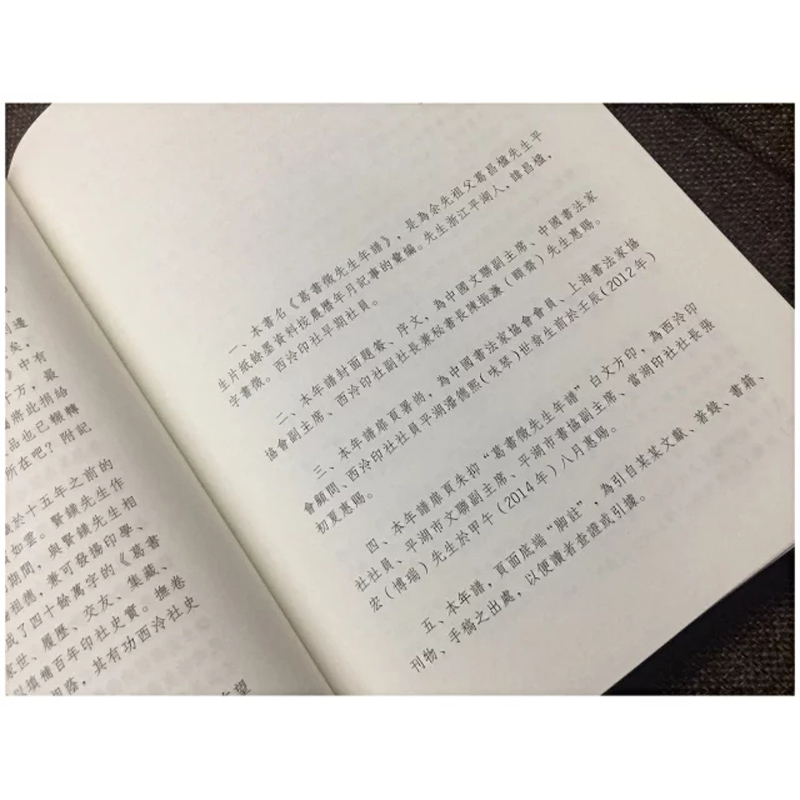 一、本書名《葛書徵先生年譜》，是為余先祖父葛昌楹先生平
生片紙餘墨資料按農曆年月記事的彙編。先生浙江平湖人，諱昌楹，
字書徵。西泠印社早期社員。
二、本年譜封面題簽、序文，為中國文聯副主席、中國書法家
協會副主席、西泠印社副社長兼秘書長陳振濂（頤齋）先生惠賜。
三、本年譜扉頁署耑，為中國書法家協會會員、上海書法家協
會顧問、西泠印社社員平湖潘德熙（味琴）世翁生前於壬辰（2012年）
初夏惠賜。
四、本年譜扉頁朱抑“葛書徵先生年譜”白文方印，為西泠印
社社員、平湖市文聯副主席、平湖市書協副主席、當湖印社社長張
宏（博瑞）先生於甲午（2014年）八月惠賜。
五、本年譜，頁面底端“脚註”，為引自某某文獻、著錄、書籍、
刊物、手稿之出處，以便讀者查證或引據。
刊邊
矣，
》中有
千方，最
將此捐給
品也已輾轉
所在吧？附記
於十五年之前的
如雲。賢鏘先生作
期間，與賢鏘先生相
，兼可發揚印學、
祖德，
成了四十餘萬字的《葛書
世、履歷、交友、集藏、
以填補百年印社史實。撫卷
相蔭，其有功西泠社史
望